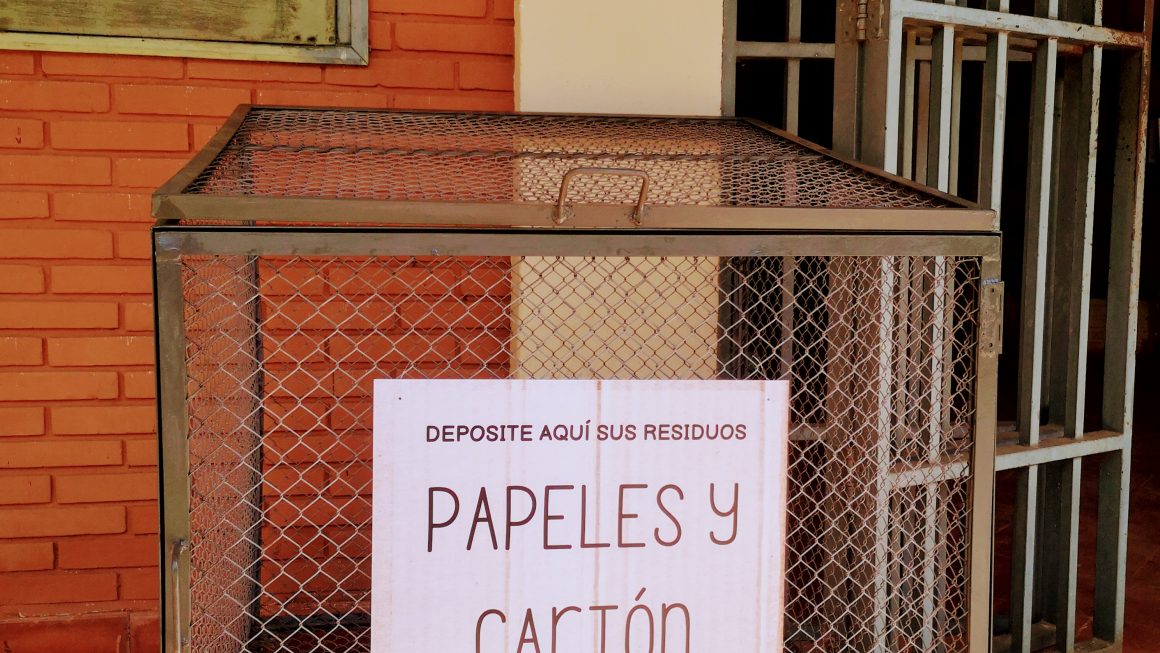 DEPOSITE AQUÍ SUS RESIDUOS
PAPELES Y
CARTÓN